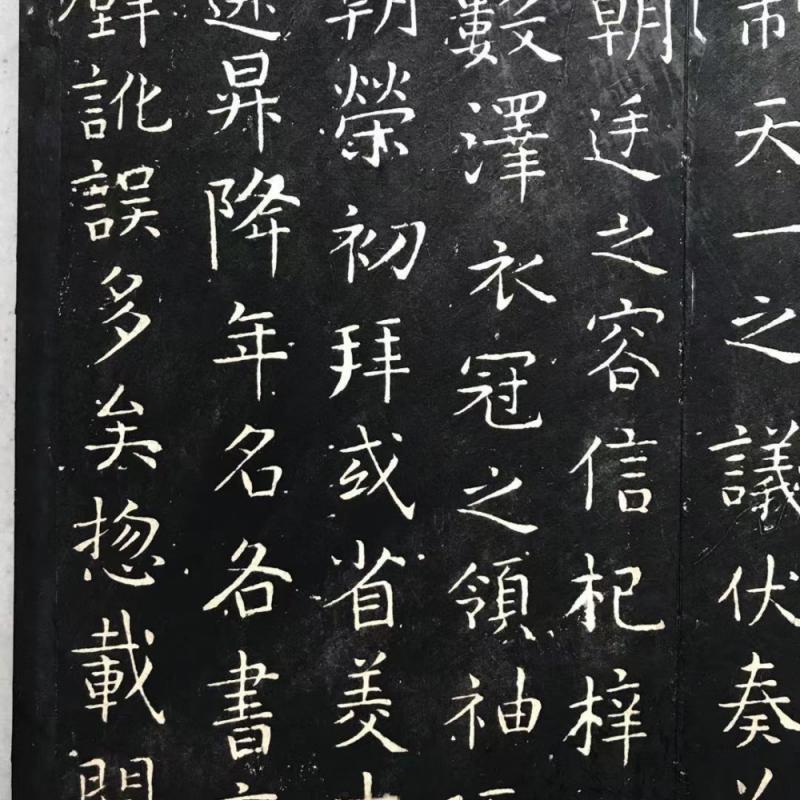 制天一之議伏奏
朝廷之容信杞梓
藪澤衣冠之領袖
朝榮初拜或省美
昇降年名各書
壁訛誤多矣揔載開